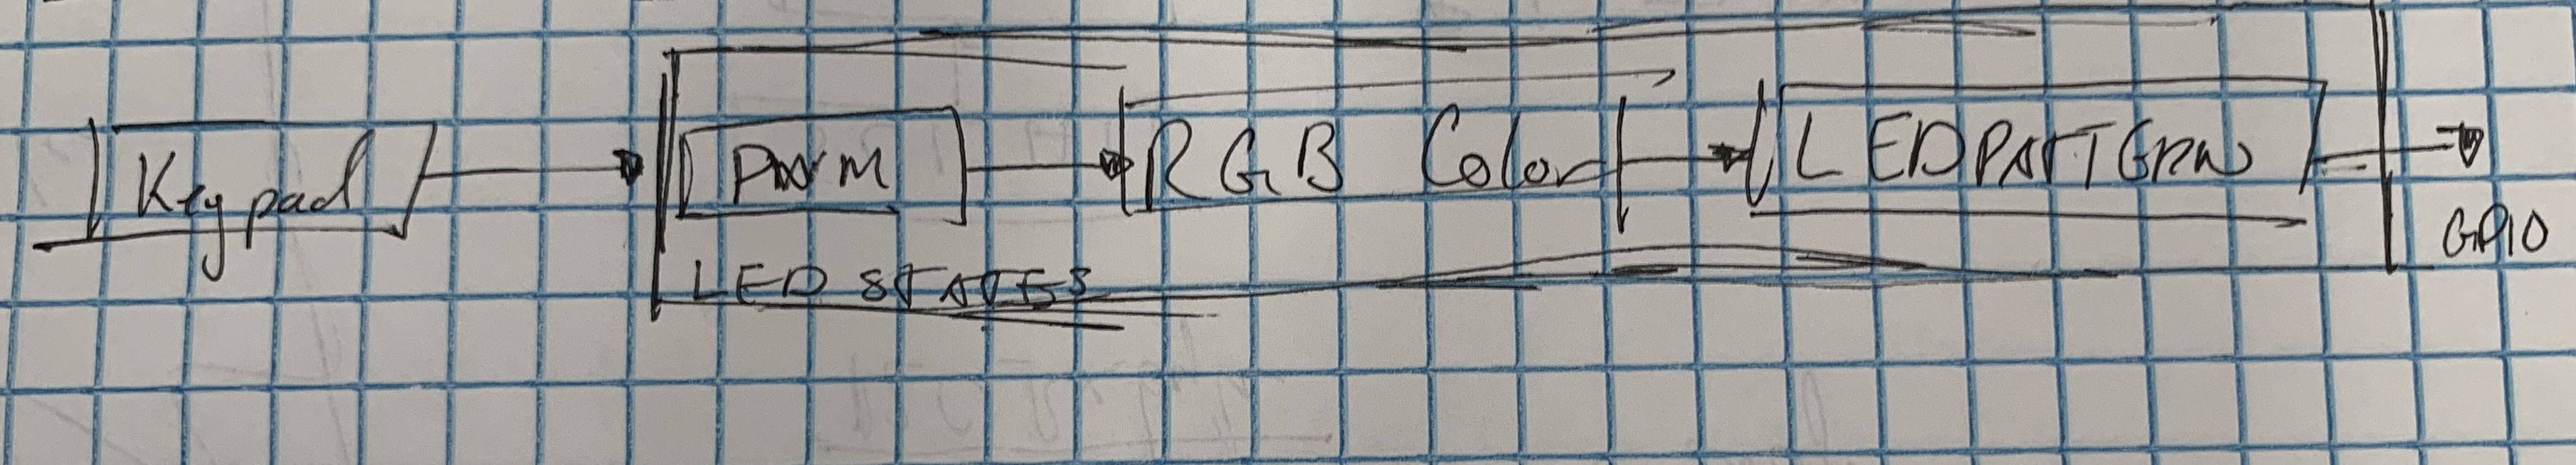 Keypad
PWM
RGB Color
LED PATTERN
LED STATES
GPIO